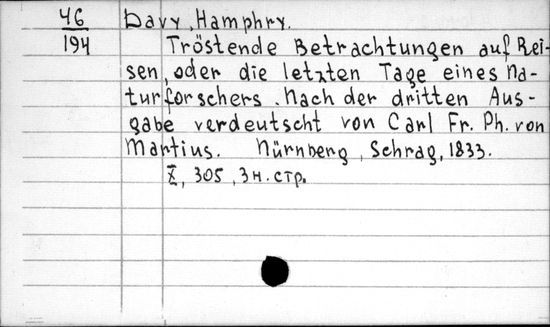 46 Davy, Hamphry.
194 Tröstende Betrachtungen auf Rei-
sen, oder die letzten Tage eines Na-
turforschers. Nach der dritten Aus-
gabe verdeutscht von Carl Fr. Ph. von
Martius. Nürnberg, Schrag, 1833.
X, 305, 3 н. стр.